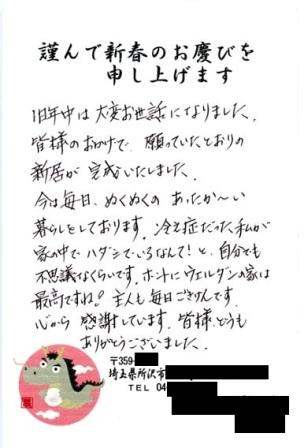 謹んで新春のお慶びを
申し上げます
旧年中は大変お世話になりました。
皆様のおかげで、願っていたとおりの
新居が完成いたしました。
今は毎日、ぬくぬくのあったか〜い
暮らしをしております。冷え症だった私が
家の中でハダシでいるなんて!と、自分でも
不思議なくらいです。ホントにウェルダンの家は
最高ですね!主人も毎日ごきげんです。
心から感謝しています。皆様、どうも
ありがとうございました。
〒359-
埼玉県所沢市
TEL 04